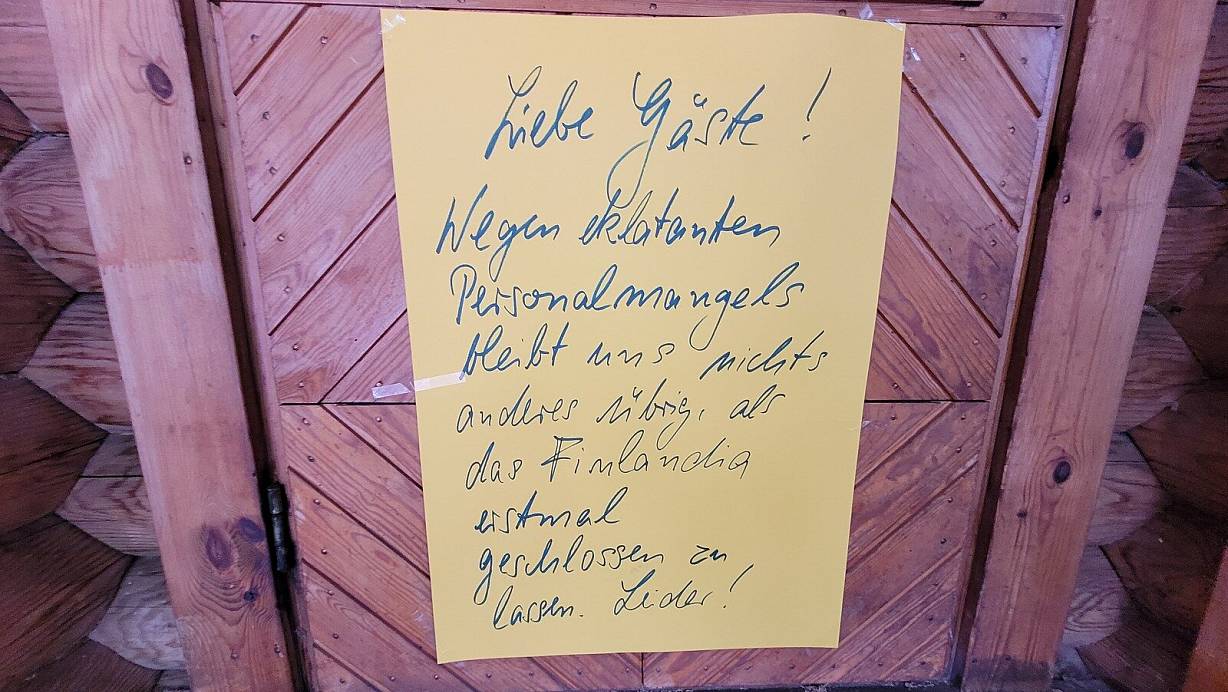 Liebe Gäste !
Wegen eklatanten
Personalmangels
bleibt uns nichts
anderes übrig, als
das Finlandia
erstmal
geschlossen zu
lassen. Leider!